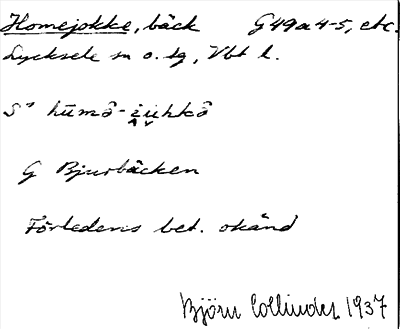 Homejokke, bäck G49a4-5, etc.
Lycksele sn o. tg, Vbt l.
Sˢ hūmå-i̭u̬hkå
G Bjurbäcken
Förledens bet. okänd
Björn Collinder 1937